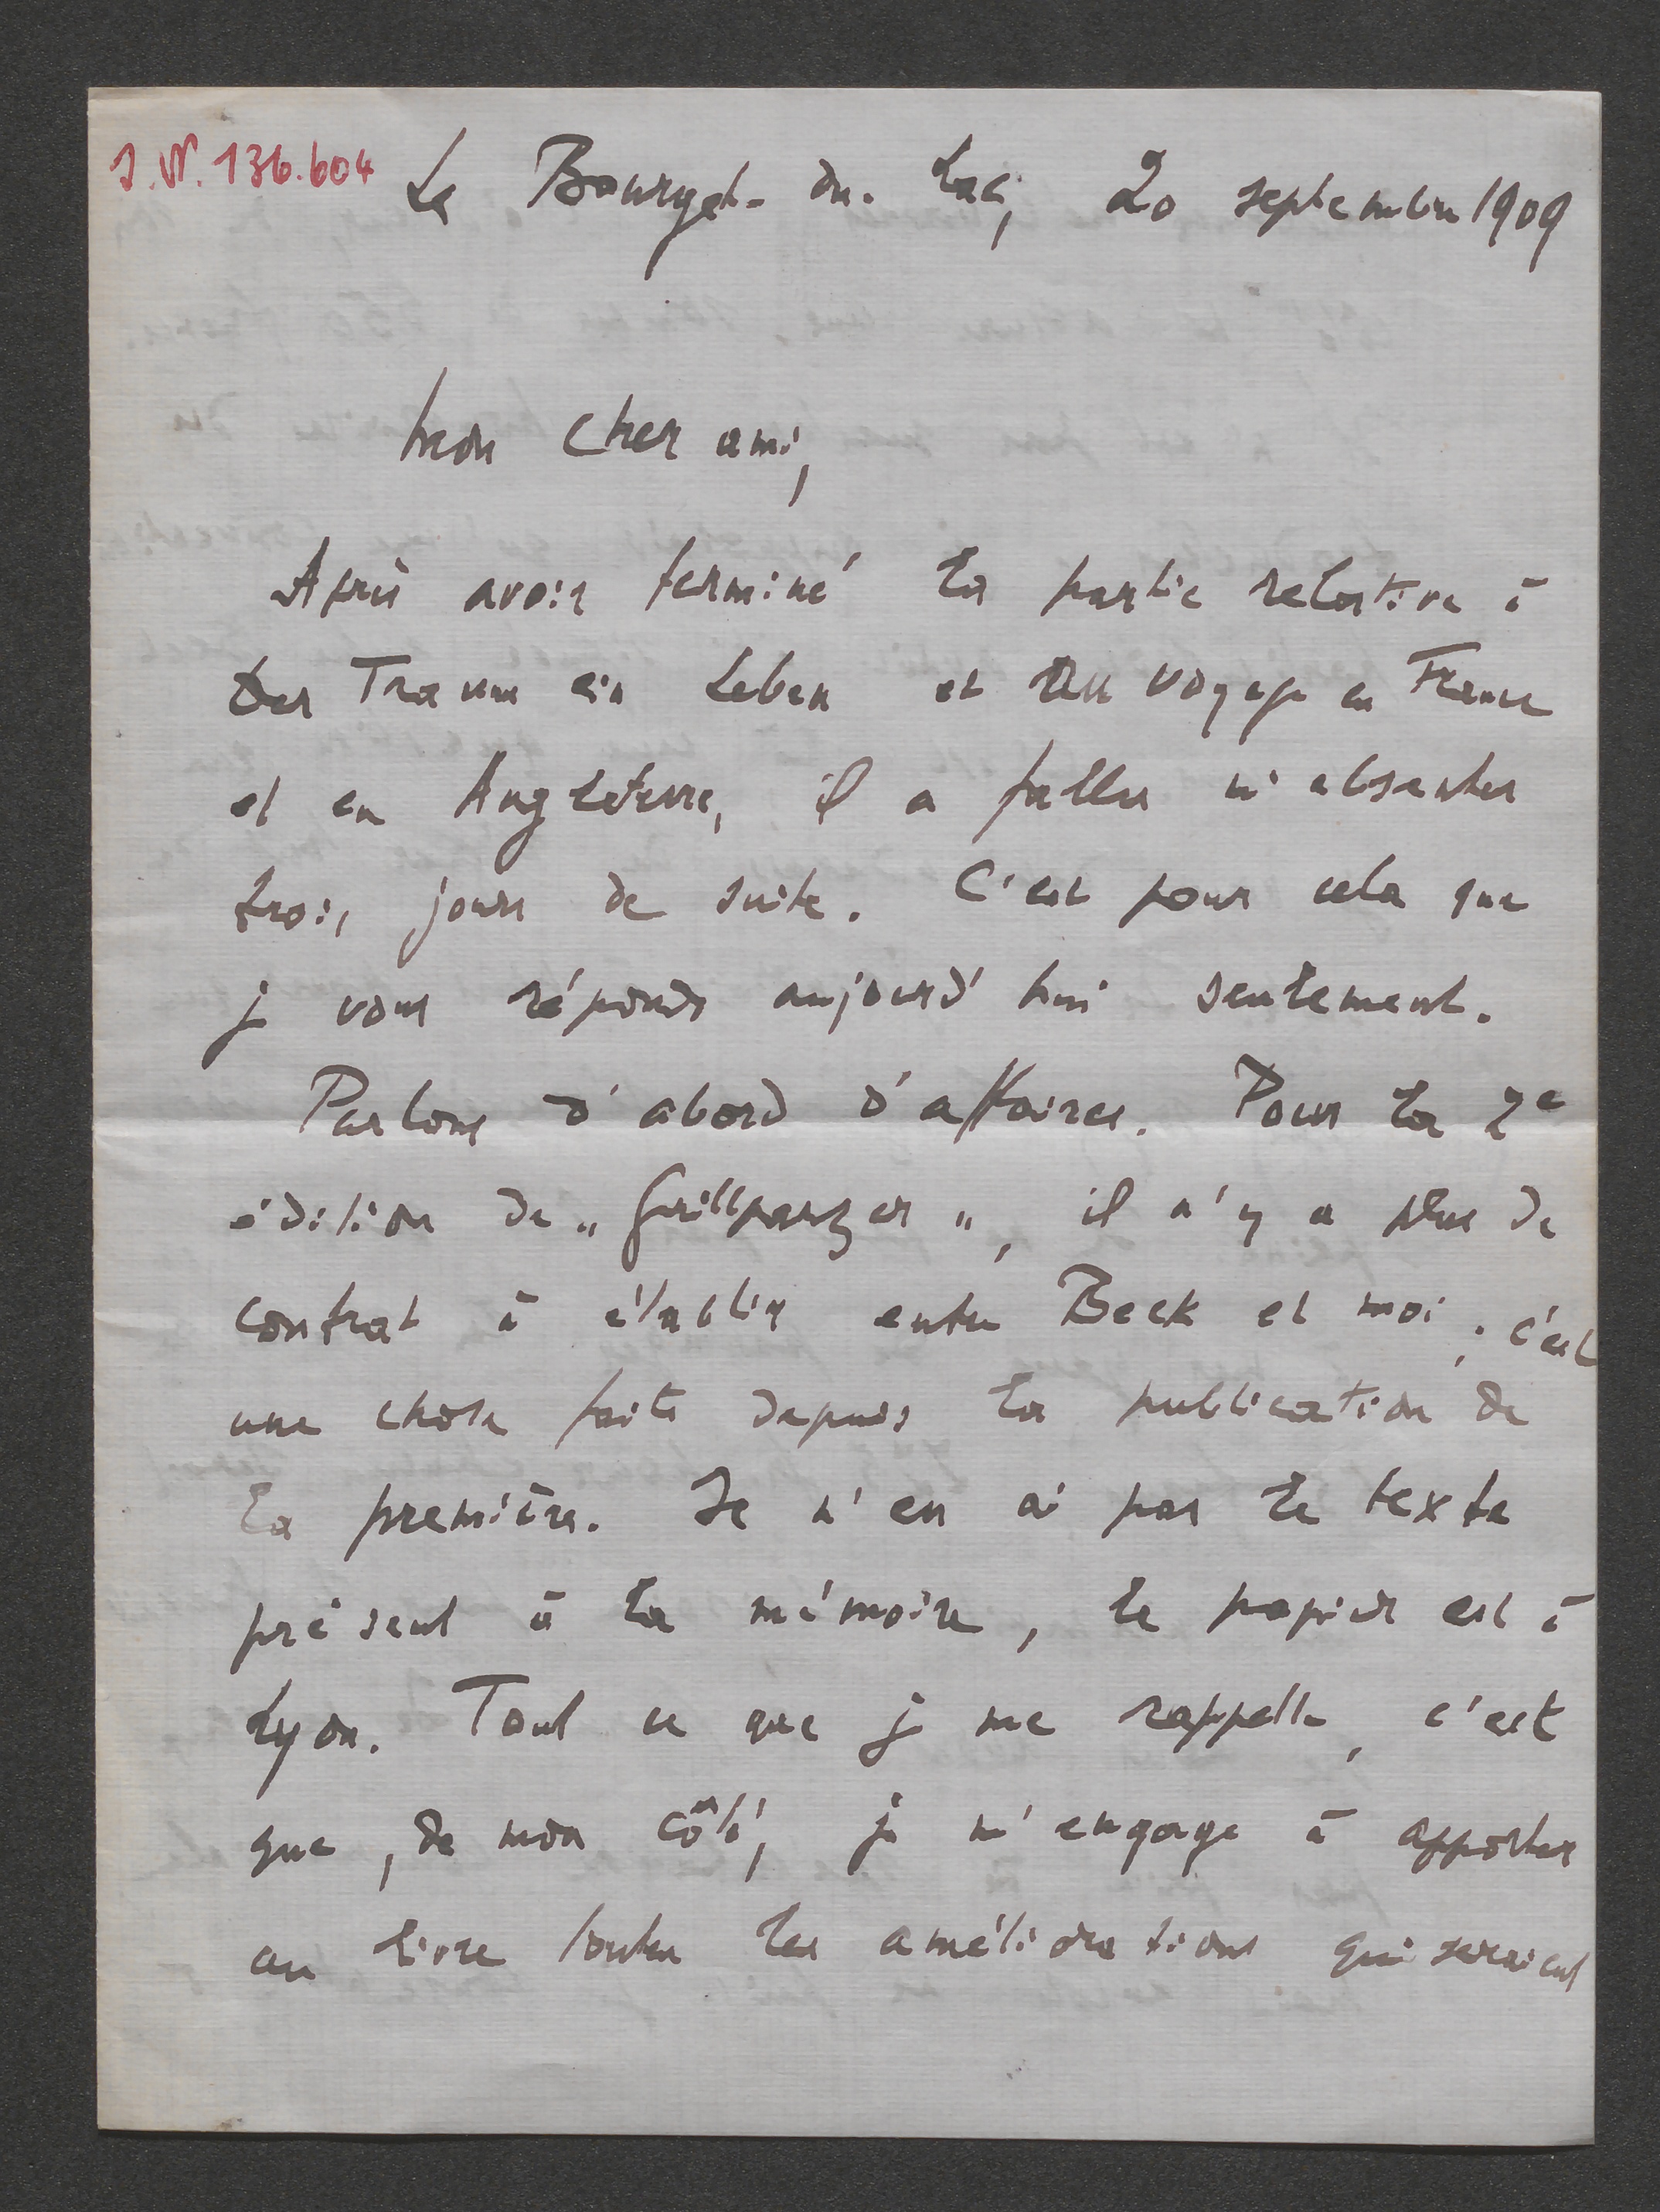 J.N. 136.604
Le Bourget-du-Lac, 20 septembre 1909
Mon cher ami,
Après avoir terminé la partie relative à
Der Traum ein Leben et au voyage en France
et en Angleterre, il a fallu m'absenter
trois jours de suite. C'est pour cela que
je vous réponds aujourd'hui seulement.
Parlons d'abord d'affaires. Pour la 2e
édition de „Grillparzer", il n'y a plus de
contrat à établir entre Beck et moi ; c'est
une chose faite depuis la publication de
la première. Je n'en ai pas le texte
présent à la mémoire, le papier est à
Lyon. Tout ce que je me rappelle, c'est
que, de mon côté, je m'engage à apporter
au livre toutes les améliorations qui seraient